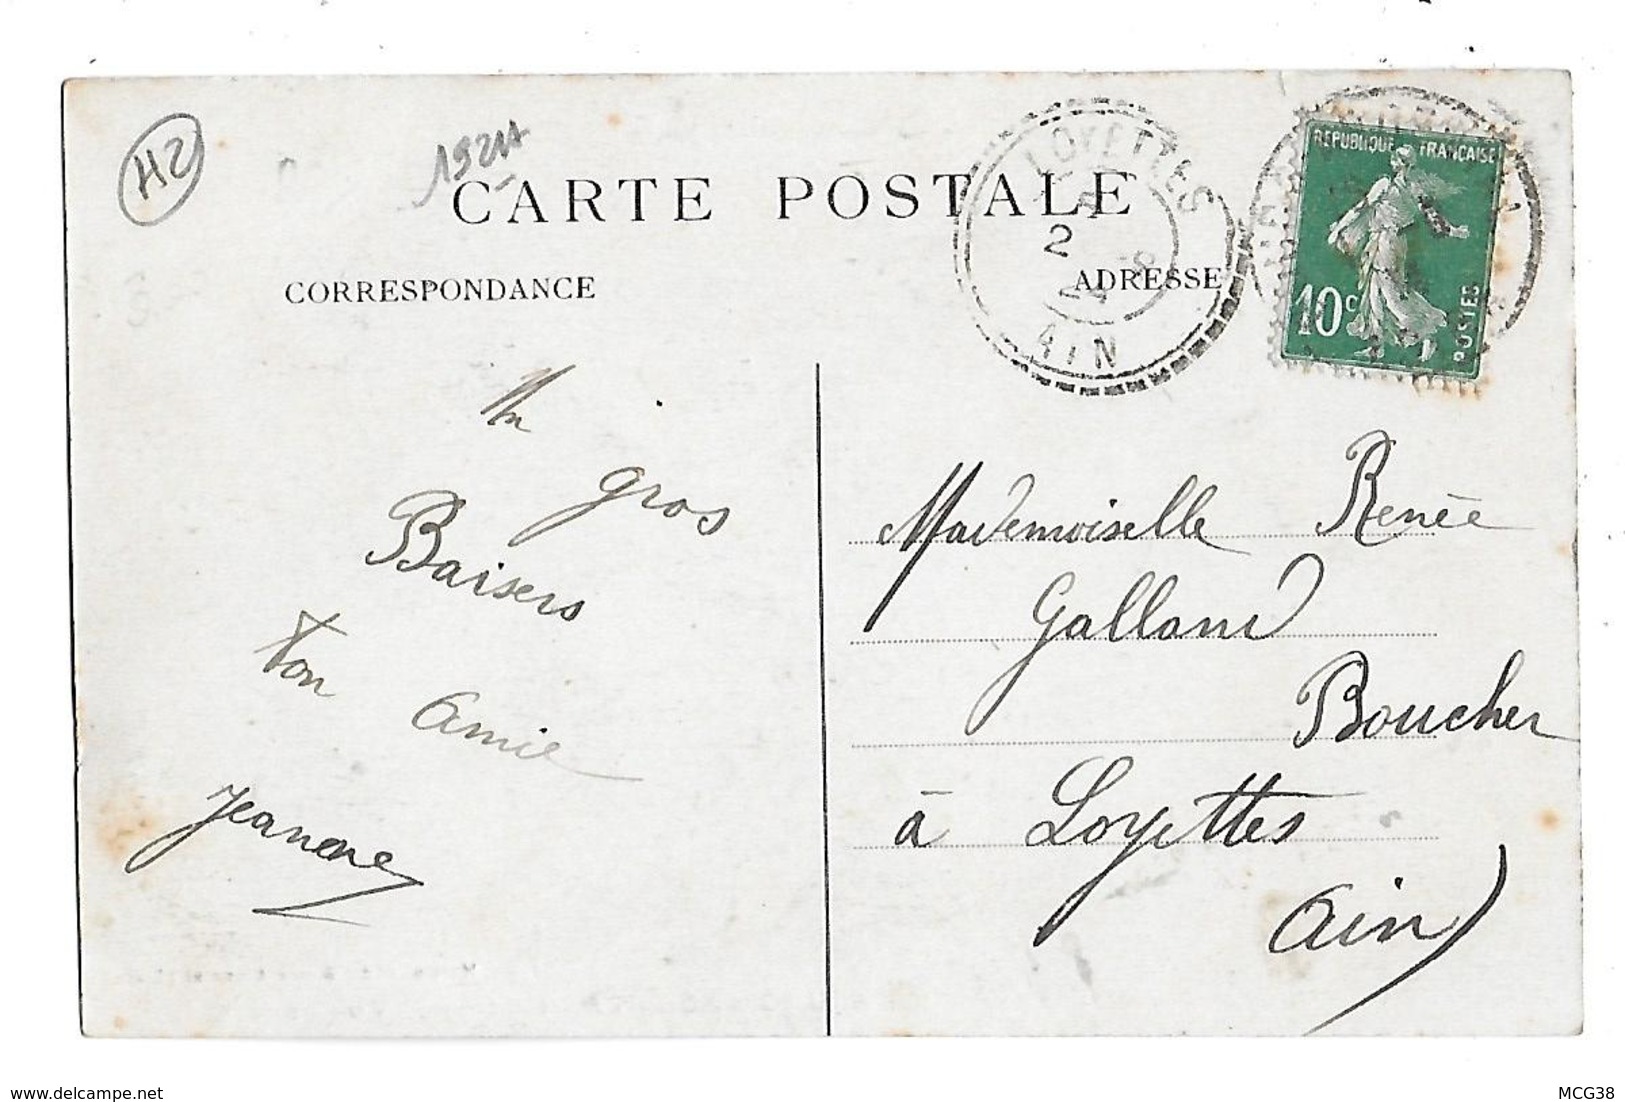 H2
CARTE POSTALE
CORRESPONDANCE
ADRESSE
LOYETTES
2
24
AIN
REPUBLIQUE FRANCAISE
10c
POSTES
Un
gros
Baisers
ton amie
Jeanne
Mademoiselle Renée
Galland
Boucher
à Loyettes
Ain)
www.delcampe.net
MCG38